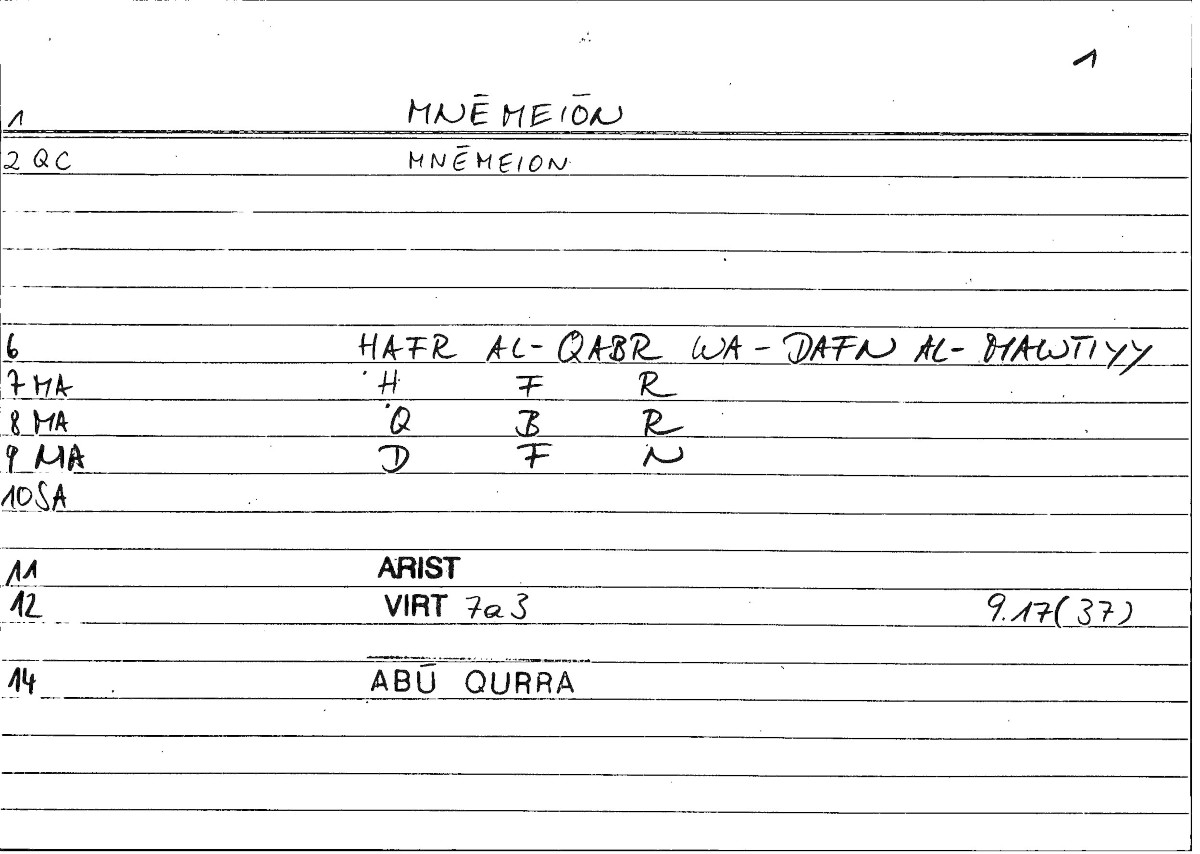 1
1 MNĒMEIŌN
2 QC MNĒMEION
6 HAFR AL-QABR WA-DAFN AL-MAWTIYY
7 MA H F R
8 MA Q B R
9 MA D F N
10 SA
11 ARIST
12 VIRT 7a3 9.17(37)
14 ABŪ QURRA